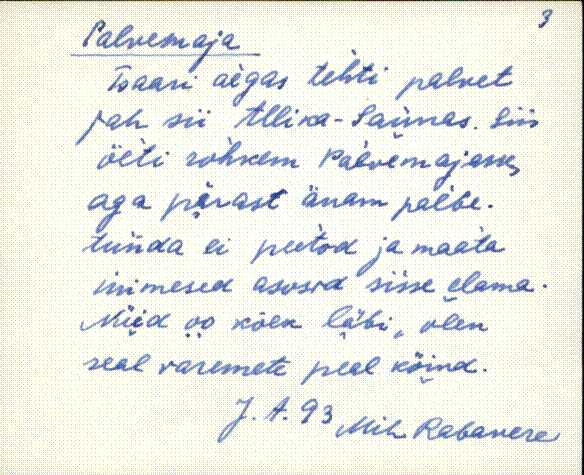 3
Palvemaja
Tsaari aegas tehti palvet
jah sii Allika-Saunas. Siis
öeti rohkem Palvemajasse,
aga pärast änam palve-
tunda ei peetod ja maata
inimesed asosid sisse elama.
Nüid oo kõek läbi, olen
seal varemete peal käind.
J. A. 93 Mih Rabavere